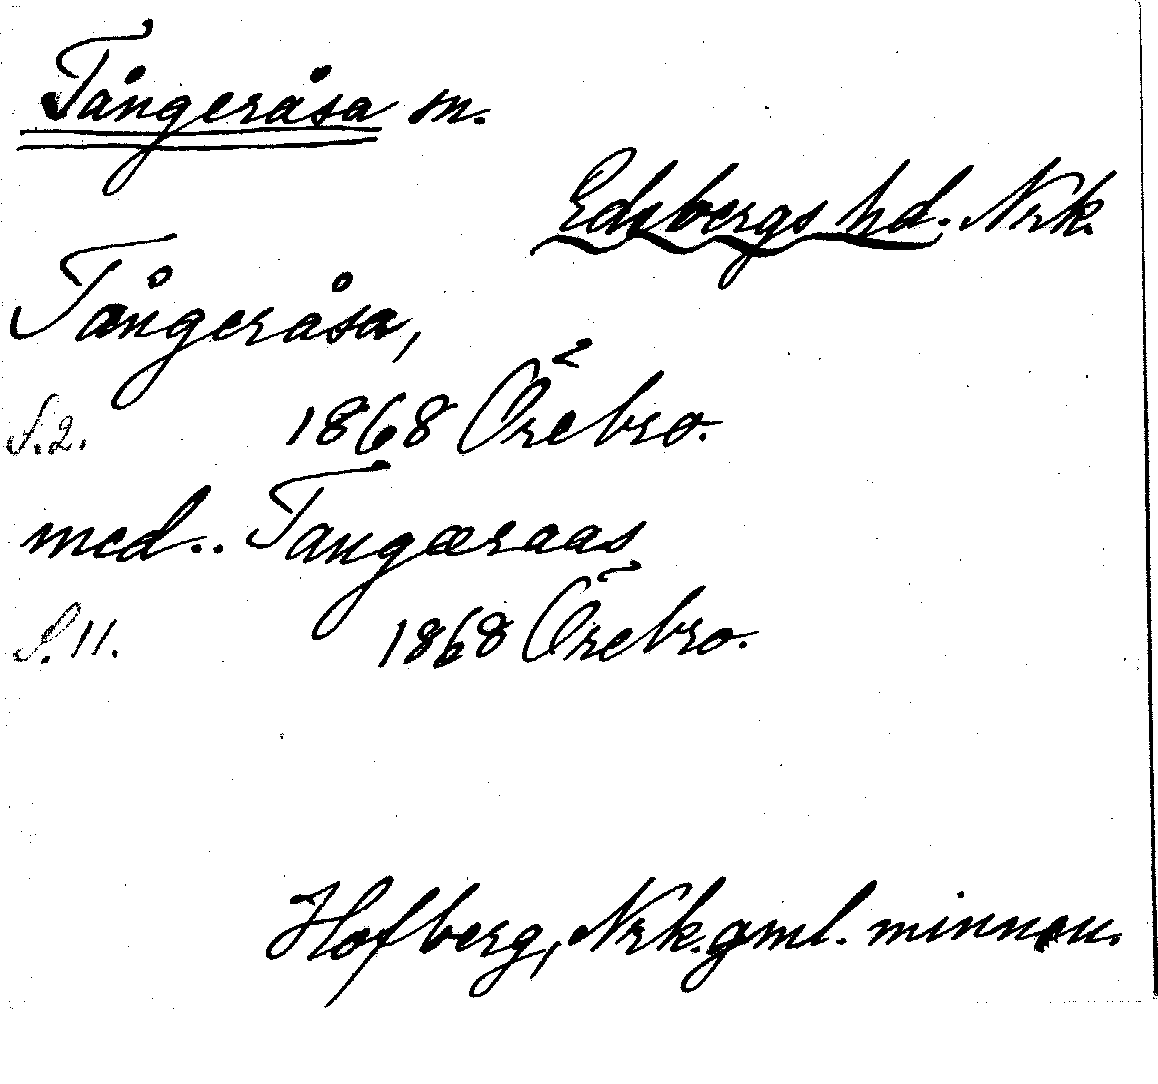 Tångeråsa sn.
Edsbergs hd. Nrk.
Tångeråsa,
S.2. 1868 Örebro.
med.. Tangæraas
S.11. 1868 Örebro.
Hofberg, Nrk. gml. minnen.